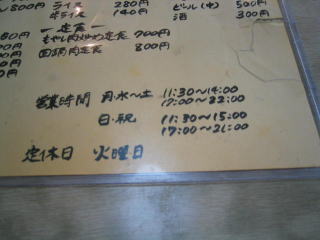 ライス 280円
半ライス 140円
ビール(中) 500円
酒 300円
定食
もやし肉炒め定食 700円
回鍋肉定食 800円
営業時間 月・水〜土 11:30〜14:00
17:00〜22:00
日・祝 11:30〜15:00
17:00〜21:00
定休日 火曜日